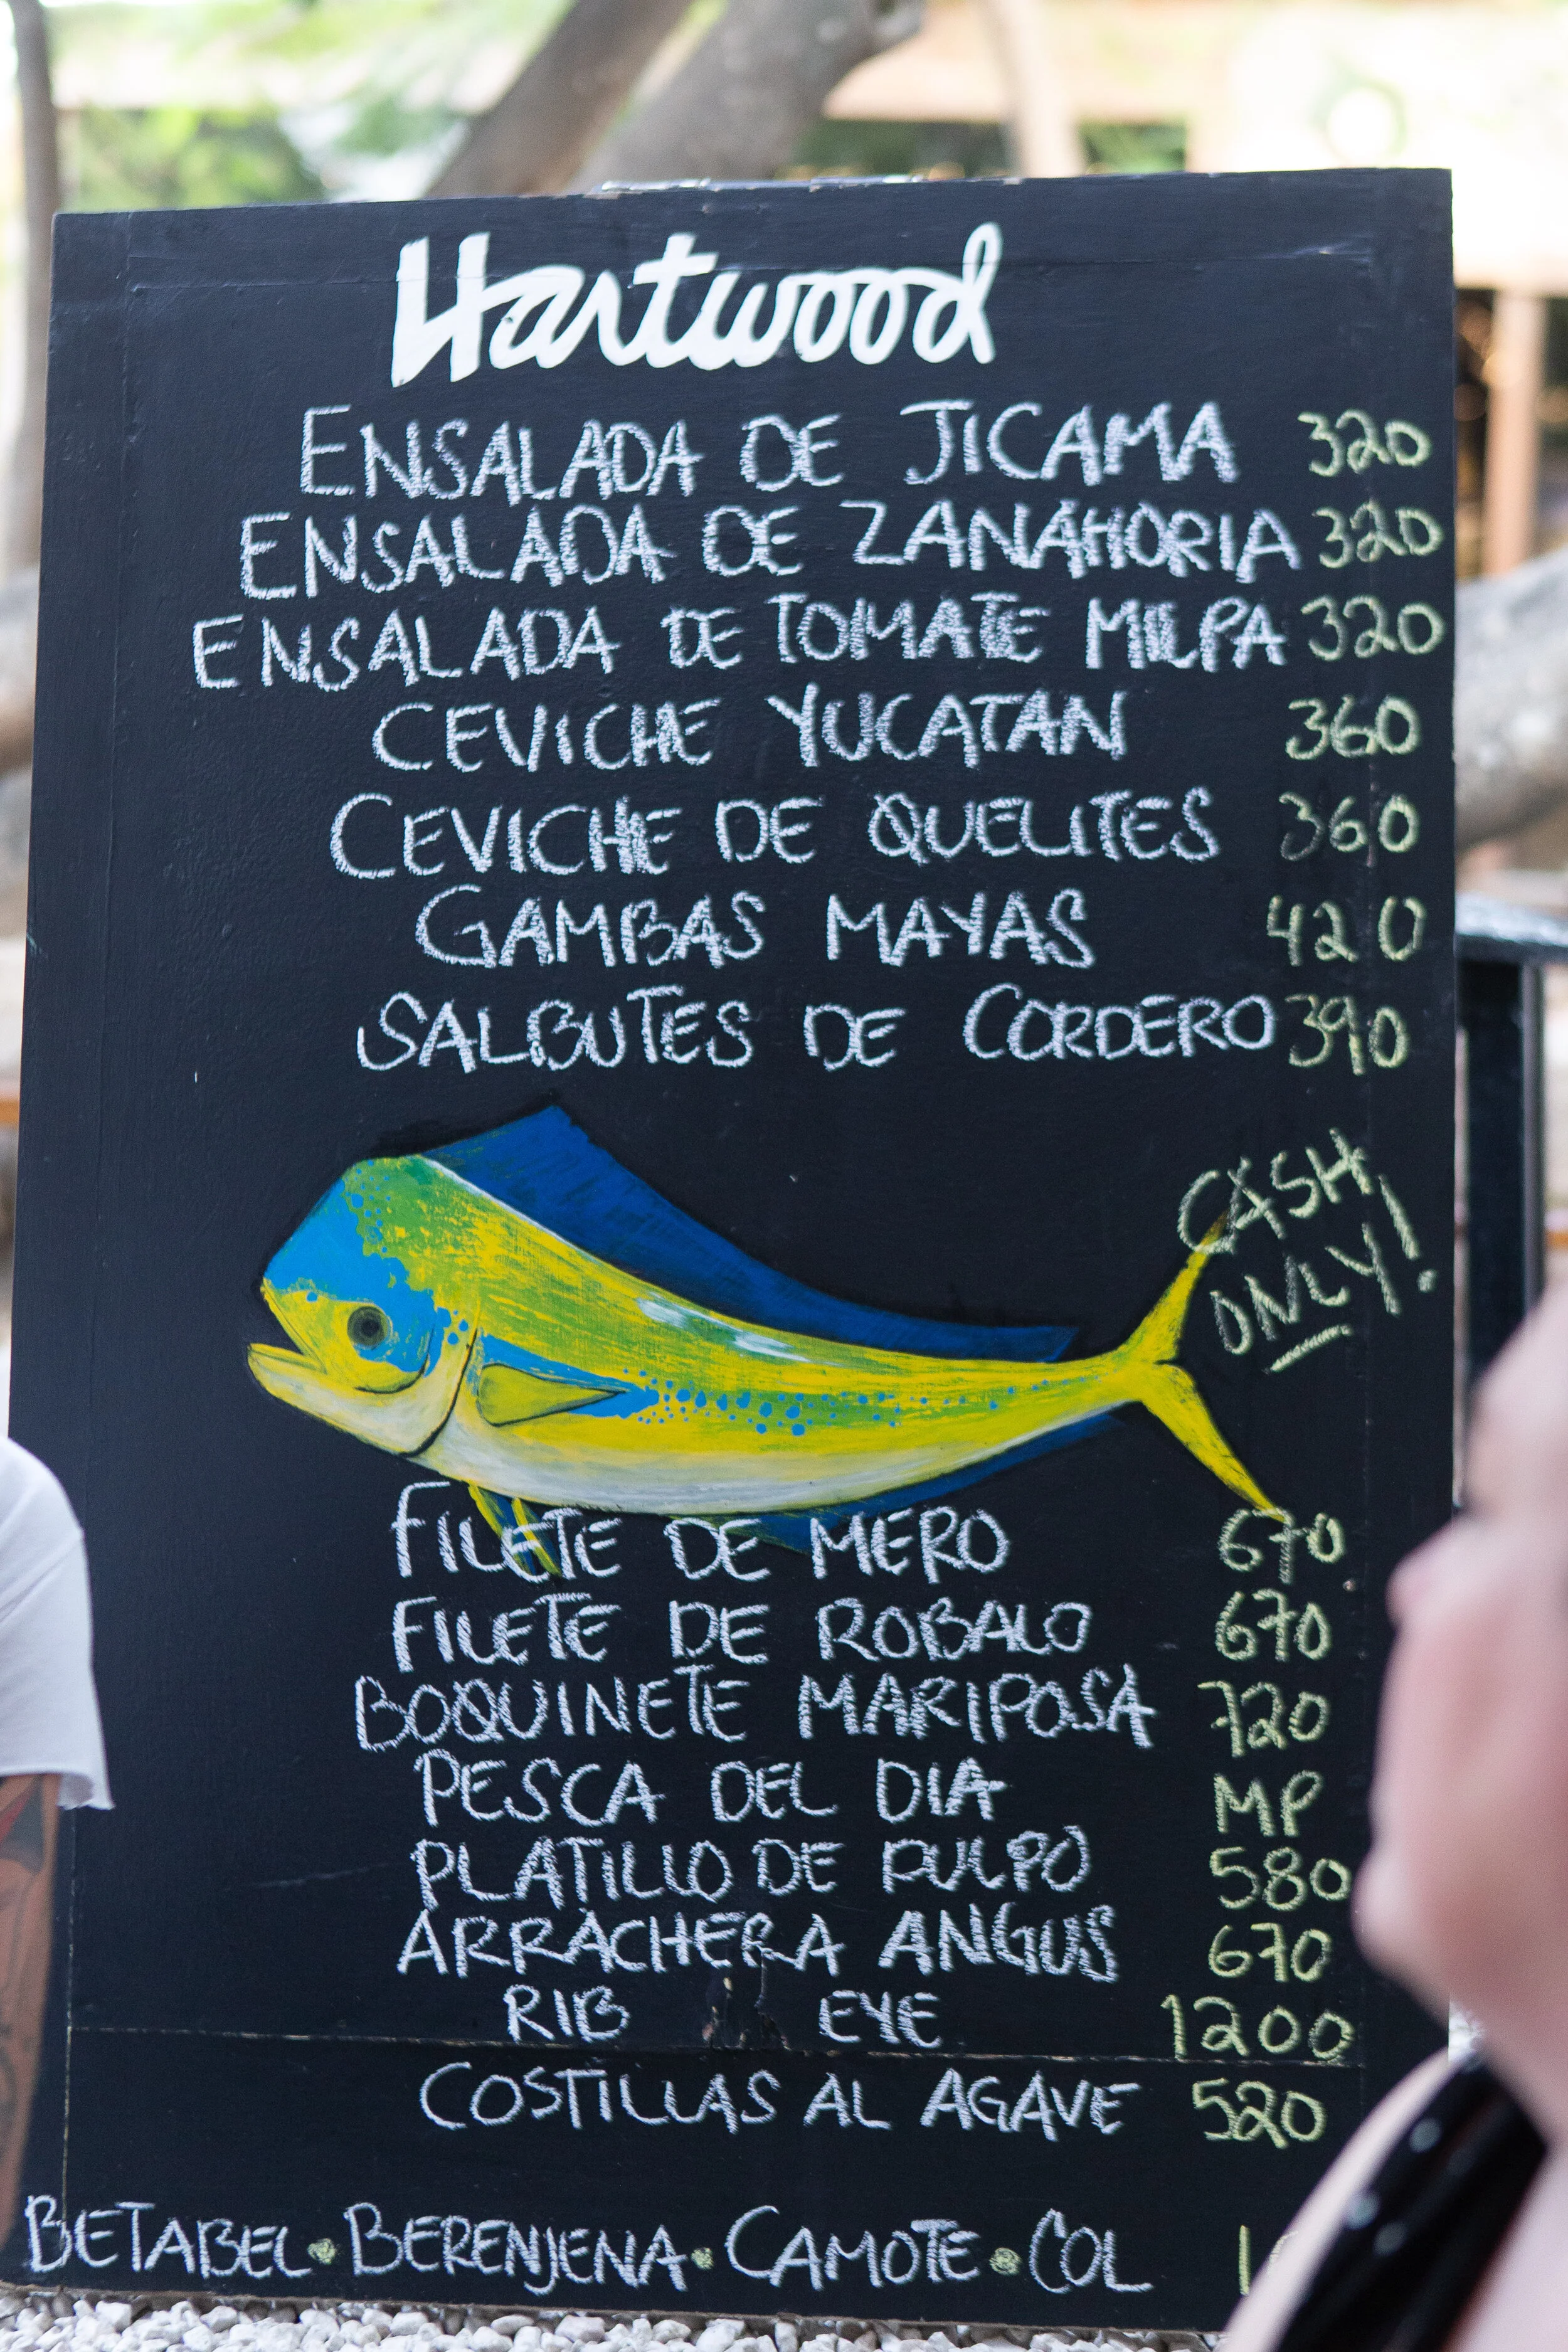 Hartwood
ENSALADA DE JICAMA 320
ENSALADA DE ZANAHORIA 320
ENSALADA DE TOMATE MILPA 320
CEVICHE YUCATAN 360
CEVICHE DE QUELITES 360
GAMBAS MAYAS 420
SALBUTES DE CORDERO 390
CASH
ONLY!
FILETE DE MERO 670
FILETE DE ROBALO 670
BOQUINETE MARIPOSA 720
PESCA DEL DIA MP
PLATILLO DE PULPO 580
ARRACHERA ANGUS 670
RIB EYE 1200
COSTILLAS AL AGAVE 520
BETABEL • BERENJENA • CAMOTE • COL